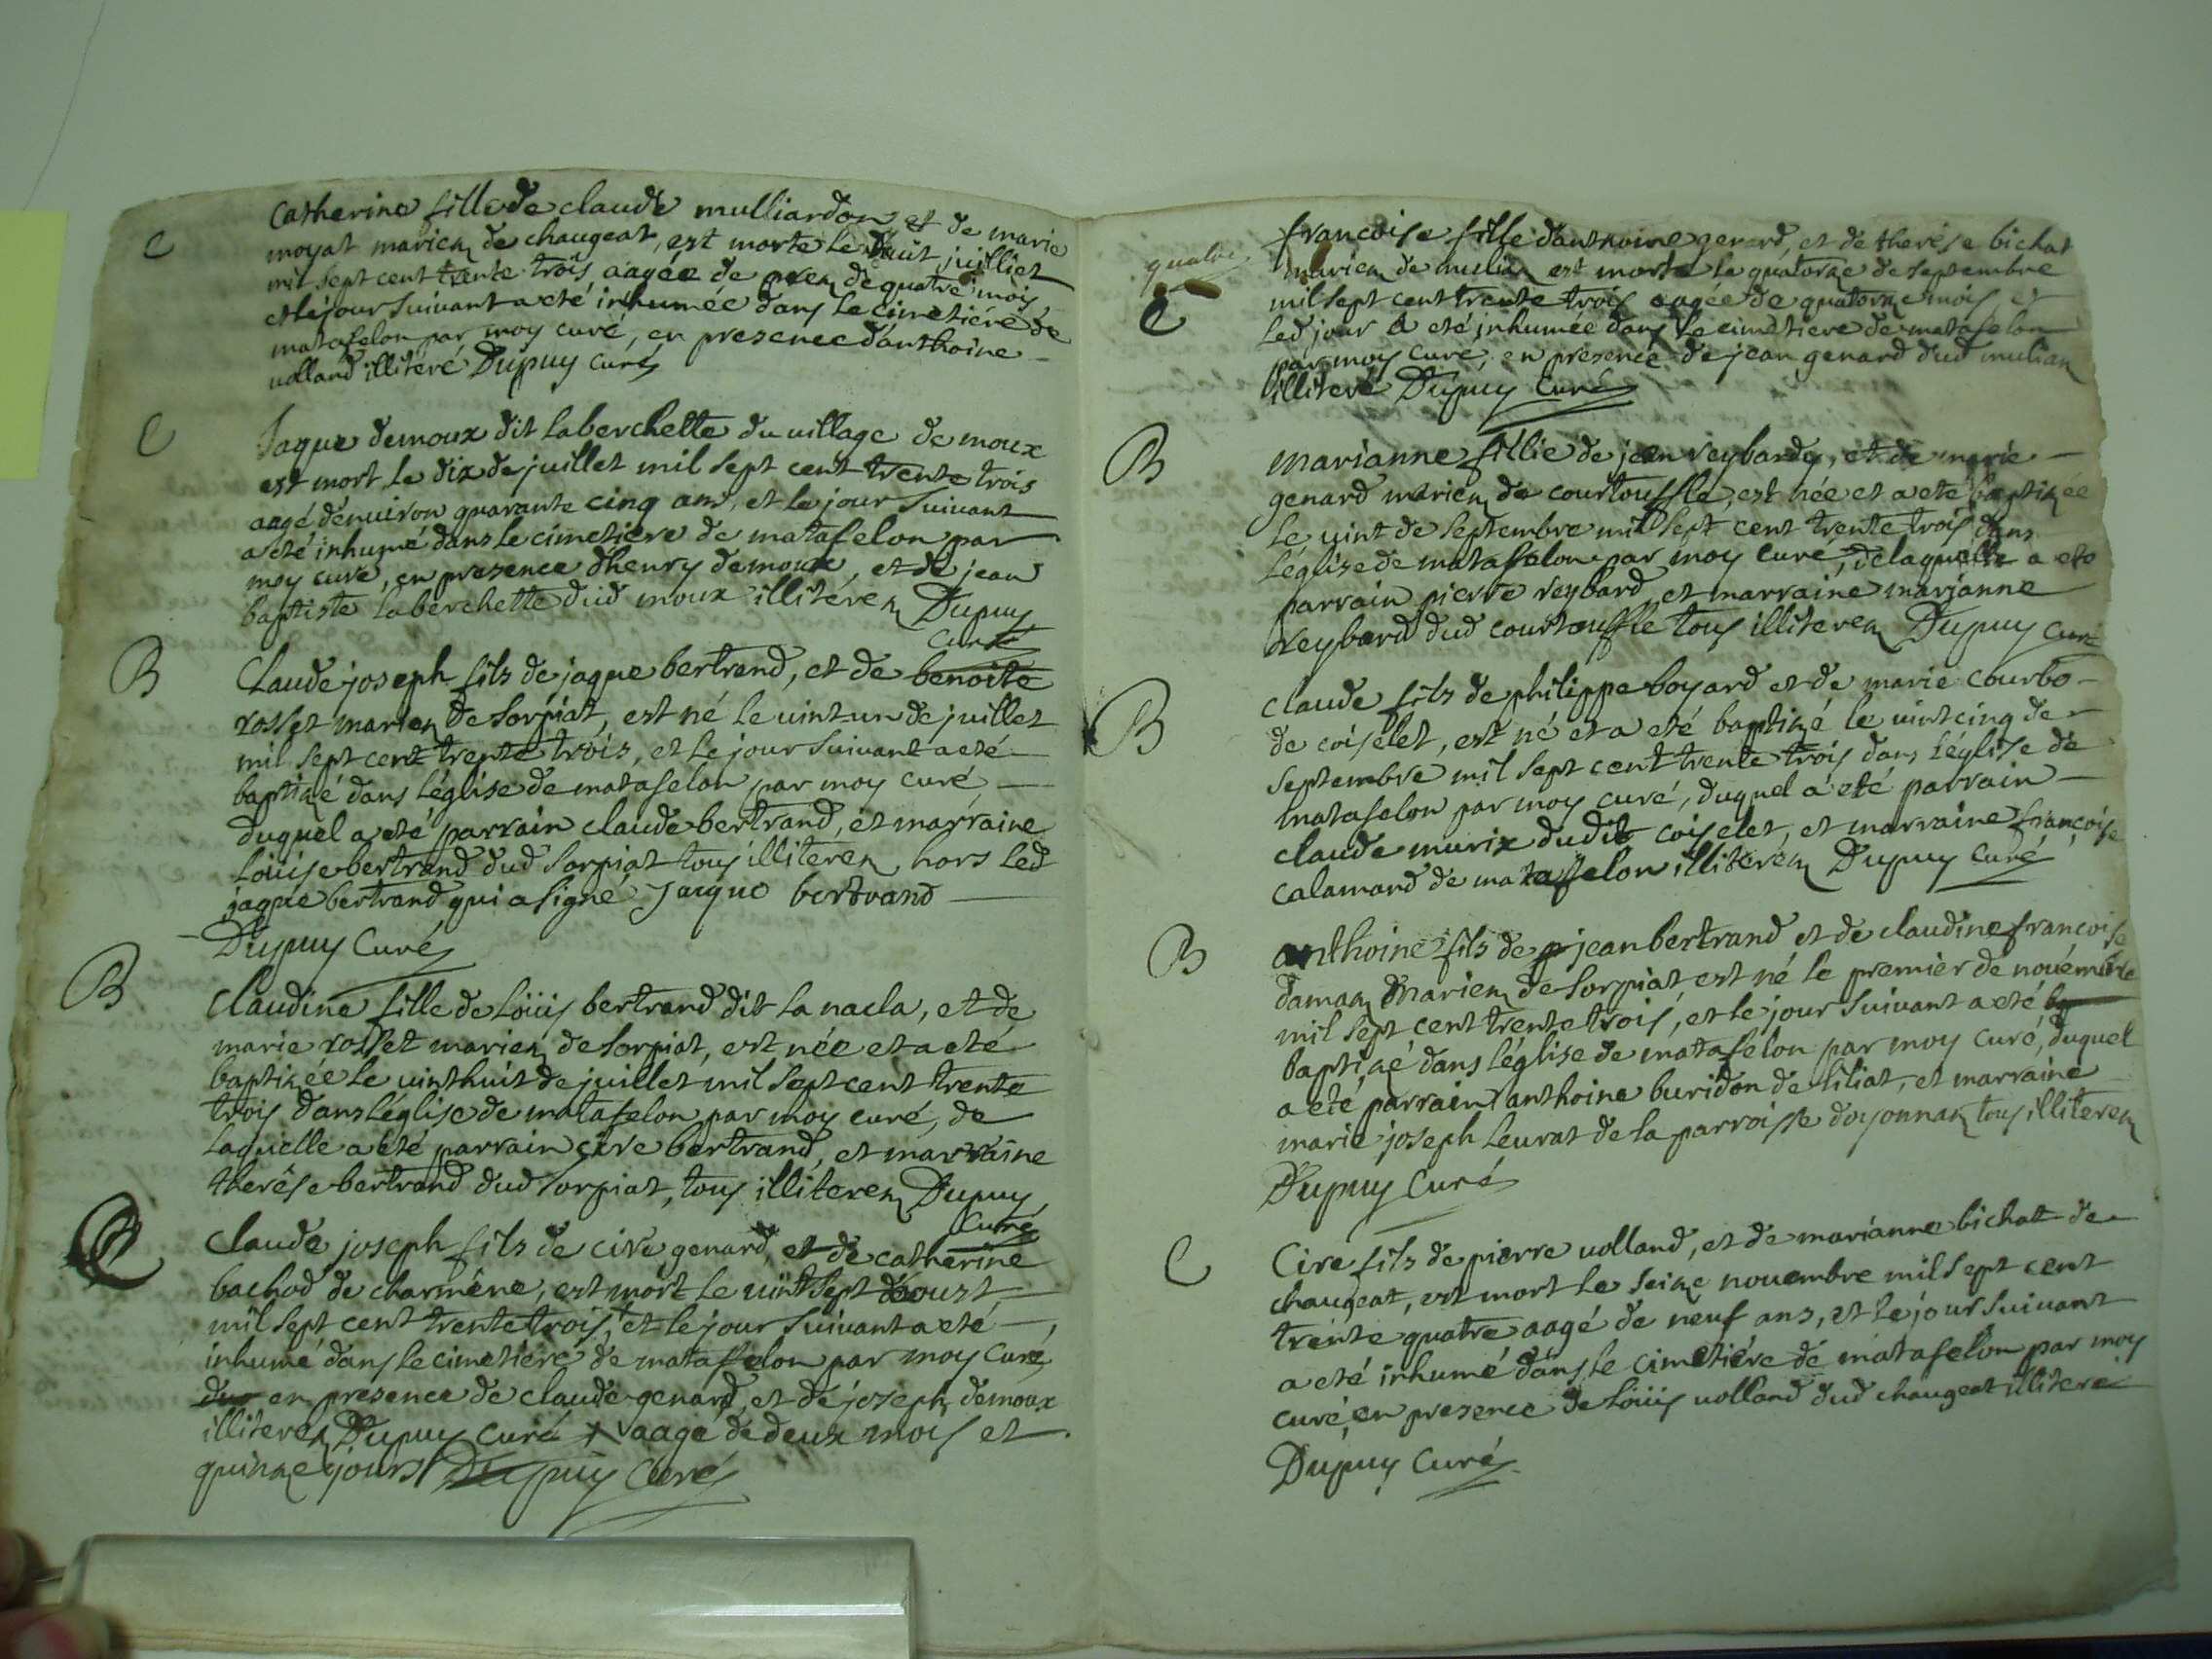 C
Catherine fille de claude mulliardon et de marie
moyat mariez de chaugeat, est morte le huit juilliet
mil sept cent trente trois aagée de prez de quatre mois
et le jour suivant a eté inhumée dans le cimetiére de
matafelon par moy curé, en presence d'anthoine
volland illiteré Dupuy curé
C
Jaque demoux dit laberchette du village de moux
est mort le dix de juillet mil sept cent trente trois
aagé d'environ quarante cinq ans, et le jour suivant
a eté inhumé dans le cimetiere de matafelon par
moy curé, en presence d'henry demoux, et de jean
baptiste laberchette dud moux illiterez Dupuy
curé
B
Claude joseph fils de jaque bertrand, et de benoite
rosset mariez de sorpiat, est né le vint un de juillet
mil sept cent trente trois, et le jour suivant a eté
baptizé dans l'église de matafelon par moy curé
duquel a eté parrain claude bertrand, et marraine
loüise bertrand dud sorpiat tous illiterez, hors led
jaque bertrand qui a signé Jacque bertrand
Dupuy curé
B
claudine fille de loüis bertrand dit la nacla, et de
marie rosset mariez de sorpiat, est née et a eté
baptizée le vint huit de juillet mil sept cent trente
trois dans l'église de matafelon par moy curé, de
laquelle a été parrain cire bertrand, et marraine
therése bertrand dud sorpiat, tous illiterez Dupuy
curé
C
claude joseph fils de cire genard, et de catherine
bachod de charméne, est mort le vint sept d'aoust
mil sept cent trente trois, + et le jour suivant a eté
inhumé dans le cimetiére de matafelon par moy curé,
duq en presence de claude genard, et de joseph demoux
illiterez Dupuy curé + aagé de deux mois et
quinze jours Dupuy curé
quatre
C
francoise fille d'anthoine genard, et de therése bichat
mariez de mulian est morte le quatorze de septembre
mil sept cent trente trois aagée de quatorze mois et
led jour a eté inhumée dans le cimetiere de matafelon
par moy curé, en presence de jean genard dud mulian
illiteré Dupuy curé
B
marianne fillie de jean reybard, et de marie
genard mariez de courtouffle, est née et a eté baptizée
le vint de septembre mil sept cent trente trois dans
l'église de matafelon par moy curé, de laquelle a eté
parrain pierre reybard, et marraine marianne
reybard dud courtouffle tous illiterez Dupuy curé
B
claude fils de philippe boyard et de marie courbo
de coiselet, est né et a eté baptizé le vint cinq de
septembre mil sept cent trente trois dans l'église de
matafelon par moy curé, duquel a eté parrain
claude murix dudit coiselet, et marraine françoise
calamard de matafelon illiterez Dupuy curé
B
anthoine fils de jean bertrand et de claudine francoise
damaz mariez de sorpiat, est né le premier de novembre
mil sept cent trente trois, et le jour suivant a eté
baptizé dans l'église de matafelon par moy curé, duquel
a eté parrain anthoine buridon de siliat, et marraine
marie joseph leurat de la parroisse d'oyonnaz tous illiterez
Dupuy curé
C
Cire fils de pierre volland, et de marianne bichat de
chaugeat, est mort le seize novembre mil sept cent
trente quatre aagé de neuf ans, et le jour suivant
a eté inhumé dans le cimetiére de matafelon par moy
curé, en presence de loüis volland dud chaugeat illiteré
Dupuy curé